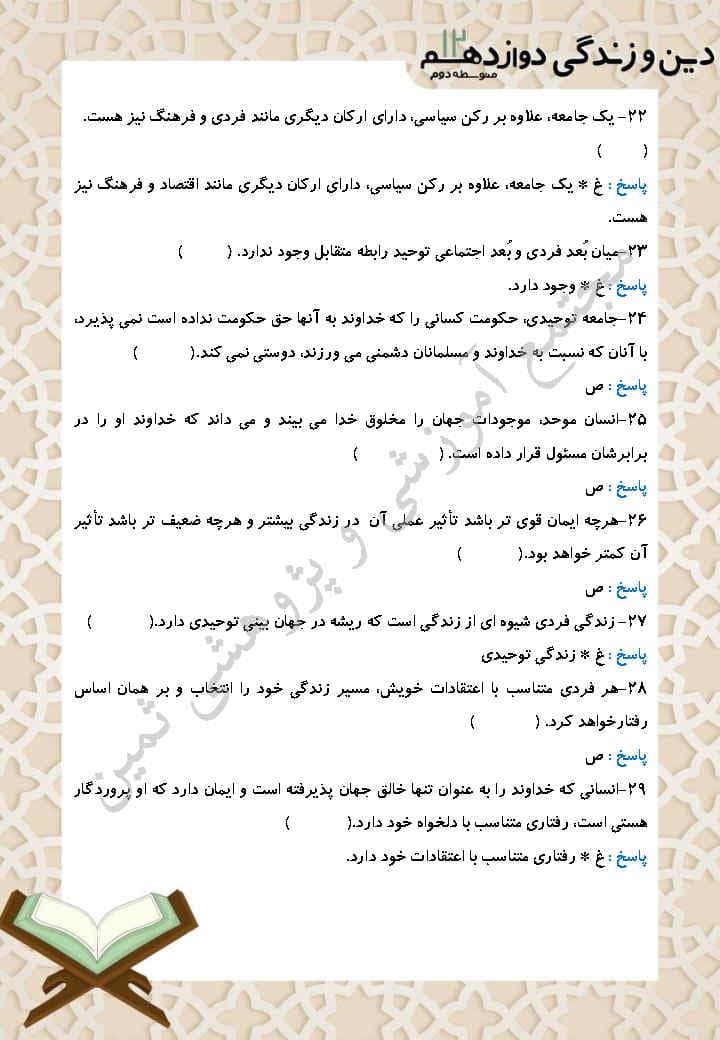 دین و زندگی دوازدهم ۱۲
متوسطه دوم
۲۲- یک جامعه، علاوه بر رکن سیاسی، دارای ارکان دیگری مانند فردی و فرهنگ نیز هست.
(        )
پاسخ : غ * یک جامعه، علاوه بر رکن سیاسی، دارای ارکان دیگری مانند اقتصاد و فرهنگ نیز
هست.
۲۳-میان بُعد فردی و بُعد اجتماعی توحید رابطه متقابل وجود ندارد. (        )
پاسخ : غ * وجود دارد.
۲۴-جامعه توحیدی، حکومت کسانی را که خداوند به آنها حق حکومت نداده است نمی پذیرد،
با آنان که نسبت به خداوند و مسلمانان دشمنی می ورزند، دوستی نمی کند.(        )
پاسخ : ص
۲۵-انسان موحد، موجودات جهان را مخلوق خدا می بیند و می داند که خداوند او را در
برابرشان مسئول قرار داده است. (        )
پاسخ : ص
۲۶-هرچه ایمان قوی تر باشد تأثیر عملی آن در زندگی بیشتر و هرچه ضعیف تر باشد تأثیر
آن کمتر خواهد بود.(        )
پاسخ : ص
۲۷- زندگی فردی شیوه ای از زندگی است که ریشه در جهان بینی توحیدی دارد.(        )
پاسخ : غ * زندگی توحیدی
۲۸-هر فردی متناسب با اعتقادات خویش، مسیر زندگی خود را انتخاب و بر همان اساس
رفتارخواهد کرد. (        )
پاسخ : ص
۲۹-انسانی که خداوند را به عنوان تنها خالق جهان پذیرفته است و ایمان دارد که او پروردگار
هستی است، رفتاری متناسب با دلخواه خود دارد.(        )
پاسخ : غ * رفتاری متناسب با اعتقادات خود دارد.
مجتمع آموزشی و پژوهشی ثمین